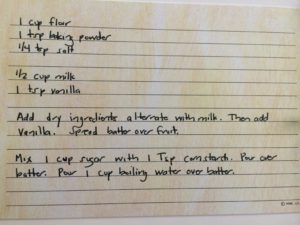 1 cup flour
1 tsp baking powder
1/4 tsp salt
1/2 cup milk
1 tsp vanilla
Add dry ingredients alternate with milk. Then add
vanilla. Spread batter over fruit.
Mix 1 cup sugar with 1 Tsp cornstarch. Pour over
batter. Pour 1 cup boiling water over batter.